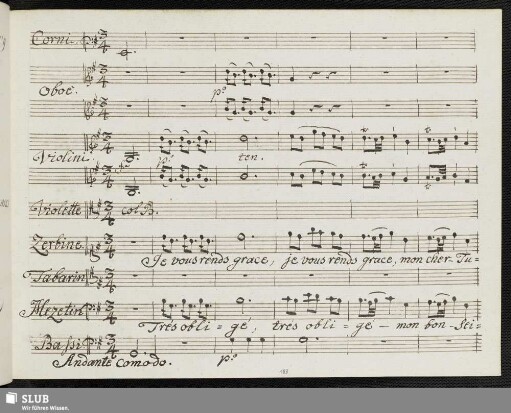 Corni.
Oboe.
p:o
Violini
p:o ten.
Violette Col B.
Zerbine
Je vous rends grace, je vous rends grace, mon cher Tu=
Tabarin
Mezetin
Tres obli = gé, tres obli = gé — mon bon Sei=
Bassi
Andante Comodo. p:o
SLUB
Wir führen Wissen.